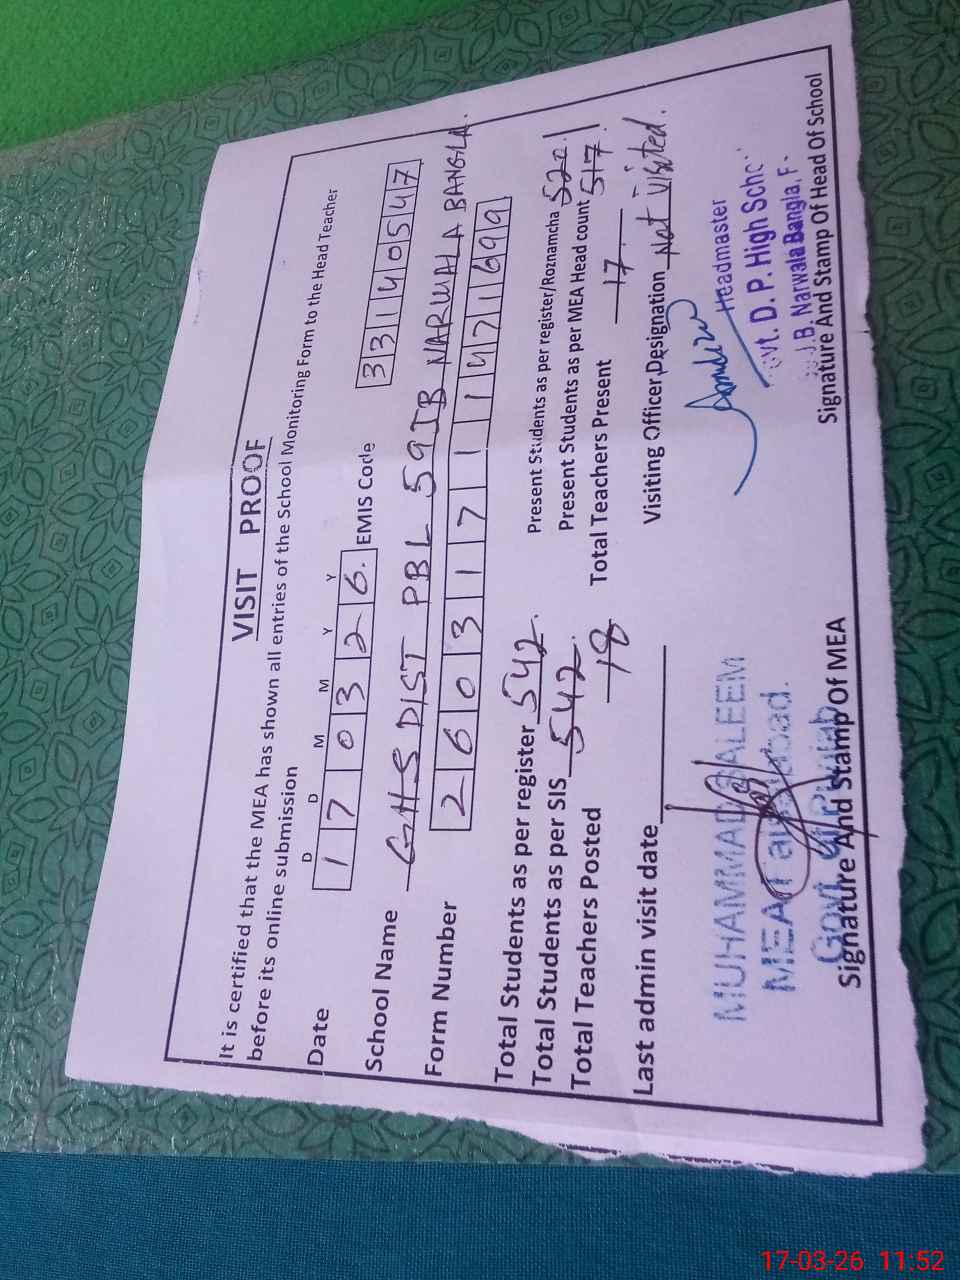 VISIT PROOF
It is certified that the MEA has shown all entries of the School Monitoring Form to the Head Teacher
before its online submission
D D M M Y Y
Date 1 7 0 3 2 6. EMIS Code 3 3 1 4 0 5 4 7
School Name GHS DIST PBL 59JB NARWALA BANGLA.
Form Number 2 6 0 3 1 7 1 1 1 4 7 1 6 9 9
Total Students as per register 542. Present Students as per register/Roznamcha 520
Total Students as per SIS 542. Present Students as per MEA Head count 517
Total Teachers Posted 18 Total Teachers Present 17
Last admin visit date Visiting Officer Designation Not Visited.
MUHAMMAD SALEEM
MEA
Govt. of Punjab
Signature And Stamp Of MEA
Headmaster
Govt. D. P. High
J. B. Narwala Bangla, F
Signature And Stamp Of Head Of School
17-03-26 11:52